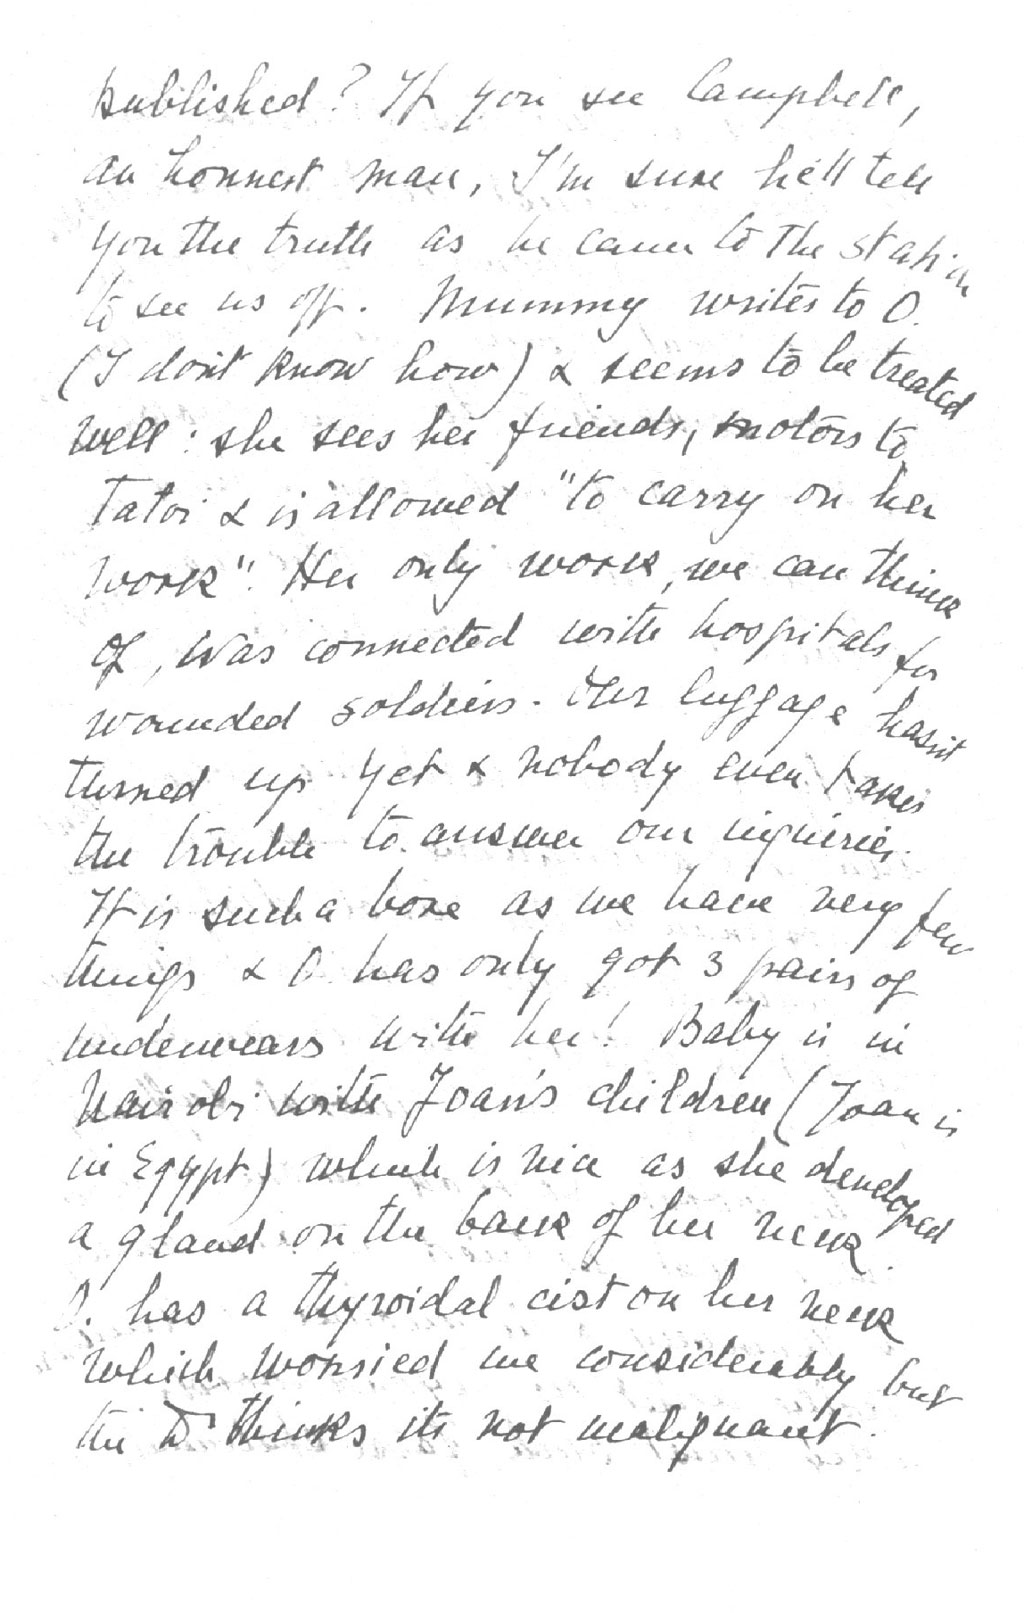 published? If you see Campbell,
an honnest man, I'm sure he'll tell
you the truth as he came to the station
to see us off. Mummy writes to O.
(I don't know how) & seems to be treated
well: she sees her friends, motors to
Tatoi & is allowed "to carry on her
work". Her only work, we can think
of, was connected with hospitals for
wounded soldiers. Our luggage hasn't
turned up yet & nobody even takes
the trouble to answer our inquiries.
It is such a bore as we have very few
things & O. has only got 3 pairs of
underwears with her! Baby is in
Nairobi with Joan's children (Joan is
in Egypt) which is nice as she developed
a gland on the back of her neck.
O. has a thyroidal cist on her neck
which worried me considerably but
the Dr thinks its not malignant.